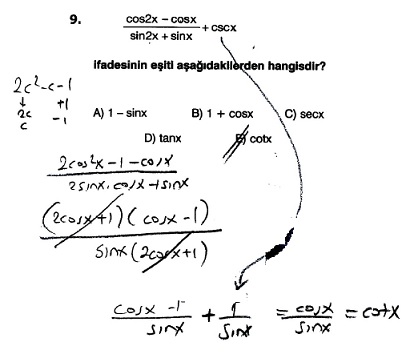 9. (cos2x – cosx)/(sin2x + sinx) + cscx
ifadesinin eşiti aşağıdakilerden hangisdir?
A) 1 – sinx B) 1 + cosx C) secx
D) tanx E) cotx
2c²-c-1
2c +1
c -1
(2cos²x - 1 - cosx)/(2sinx.cosx + sinx)
((2cosx+1)(cosx-1))/(sinx(2cosx+1))
(cosx - 1)/sinx + 1/sinx = cosx/sinx = cotx